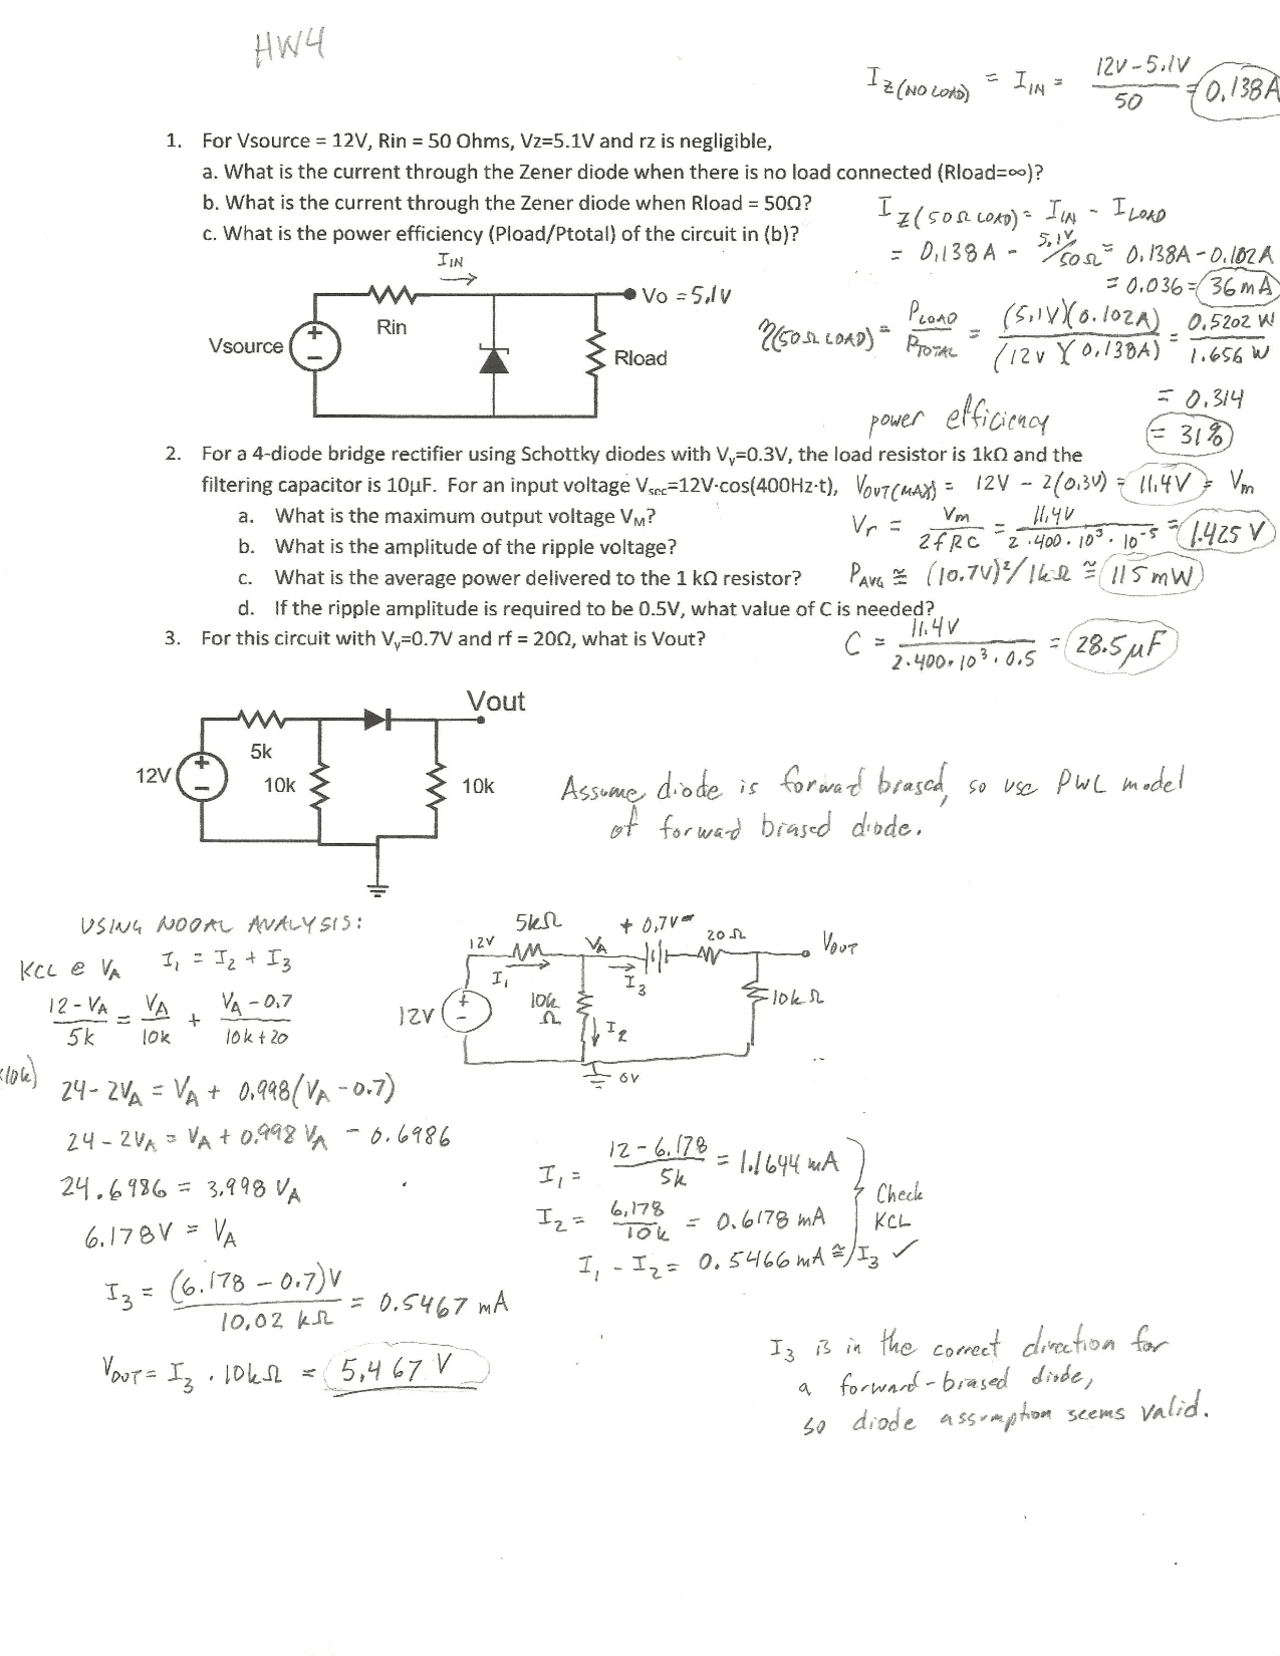 HW4
I_Z(NO LOAD) = I_IN = (12V-5.1V)/50 = 0.138A
1. For Vsource = 12V, Rin = 50 Ohms, Vz=5.1V and rz is negligible,
a. What is the current through the Zener diode when there is no load connected (Rload=∞)?
b. What is the current through the Zener diode when Rload = 50Ω?
I_Z(50Ω LOAD) = I_IN - I_LOAD
c. What is the power efficiency (Pload/Ptotal) of the circuit in (b)?
= 0.138A - 5.1V/50Ω = 0.138A-0.102A
= 0.036 = 36mA
I_IN
Vo = 5.1V
Rin
Vsource
Rload
η(50Ω LOAD) = P_LOAD/P_TOTAL = (5.1V)(0.102A)/(12V)(0.138A) = 0.5202 W/1.656 W
= 0.314
power efficiency = 31%
2. For a 4-diode bridge rectifier using Schottky diodes with Vγ=0.3V, the load resistor is 1kΩ and the
filtering capacitor is 10μF. For an input voltage Vsec=12V·cos(400Hz·t),
V_OUT(MAX) = 12V - 2(0.3V) = 11.4V = Vm
a. What is the maximum output voltage VM?
Vr = Vm/2fRC = 11.4V/2·400·10³·10⁻⁵ = 1.425 V
b. What is the amplitude of the ripple voltage?
c. What is the average power delivered to the 1 kΩ resistor?
P_AVG ≅ (10.7V)²/1kΩ ≅ 115mW
d. If the ripple amplitude is required to be 0.5V, what value of C is needed?
C = 11.4V/2·400·10³·0.5 = 28.5μF
3. For this circuit with Vγ=0.7V and rf = 20Ω, what is Vout?
Vout
5k
12V
10k
10k
Assume diode is forward biased, so use PWL model
of forward biased diode.
USING NODAL ANALYSIS:
KCL @ V_A I₁ = I₂ + I₃
(12-V_A)/5k = V_A/10k + (V_A-0.7)/(10k+20)
24-2V_A = V_A + 0.998(V_A-0.7)
24-2V_A = V_A + 0.998 V_A - 0.6986
24.6986 = 3.998 V_A
6.178V = V_A
I₃ = (6.178-0.7)V/10.02 kΩ = 0.5467 mA
V_OUT = I₃ · 10kΩ = 5.467 V
5kΩ
+ 0.7V -
20Ω
12V
V_A
V_OUT
I₁
I₃
10kΩ
10kΩ
12V
I₂
0V
I₁ = (12-6.178)/5k = 1.1644 mA
I₂ = 6.178/10k = 0.6178 mA
I₁ - I₂ = 0.5466 mA ≅ I₃ ✓
Check
KCL
I₃ is in the correct direction for
a forward-biased diode,
so diode assumption seems valid.